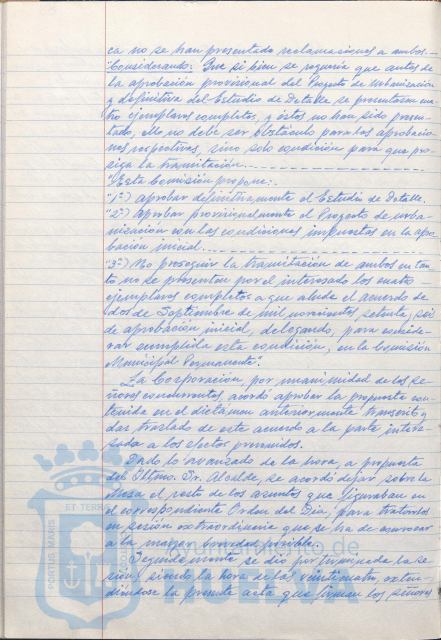 ca no se han presentado reclamaciones a ambos.-
"Considerando: Que si bien se requería que antes de
la aprobación provisional del Proyecto de Urbanización
y definitiva del Estudio de Detalle, se presentasen cua-
tro ejemplares completos, y éstos no han sido presen-
tado, ello no debe ser obstáculo para las aprobacio-
nes respectivas, sino solo condición para que pro-
siga la tramitación.
"Esta Comisión propone:
"1º) Aprobar definitivamente el Estudio de Detalle.
"2º) Aprobar provisionalmente el Proyecto de urba-
nización con las condiciones impuestas en la apro-
bación inicial.
"3º) No proseguir la tramitación de ambos en tan-
to no se presenten por el interesado los cuatro
ejemplares completos a que alude el acuerdo de
dos de Septiembre de mil novecientos setenta y seis
de aprobación inicial, delegando, para conside-
rar cumplida esta condición, en la Comisión
Municipal Permanente".
La Corporación, por unanimidad de los se-
ñores concurrentes, acordó aprobar la propuesta con-
tenida en el dictamen anteriormente transcrito y
dar traslado de este acuerdo a la parte intere-
sada a los efectos prevenidos.
Dado lo avanzado de la hora, a propuesta
del Iltmo. Sr. Alcalde, se acordó dejar sobre la
Mesa el resto de los asuntos que figuraban en
el correspondiente Orden del Día, para tratarlos
en sesión extraordinaria que se ha de convocar
a la mayor brevedad posible.
Seguidamente se dio por terminada la se-
sión, siendo la hora de las veinticuatro, exten-
diéndose la presente acta que firman los señores
PORTUS MARIS
ET TERRAE
Ayuntamiento de
HUELVA